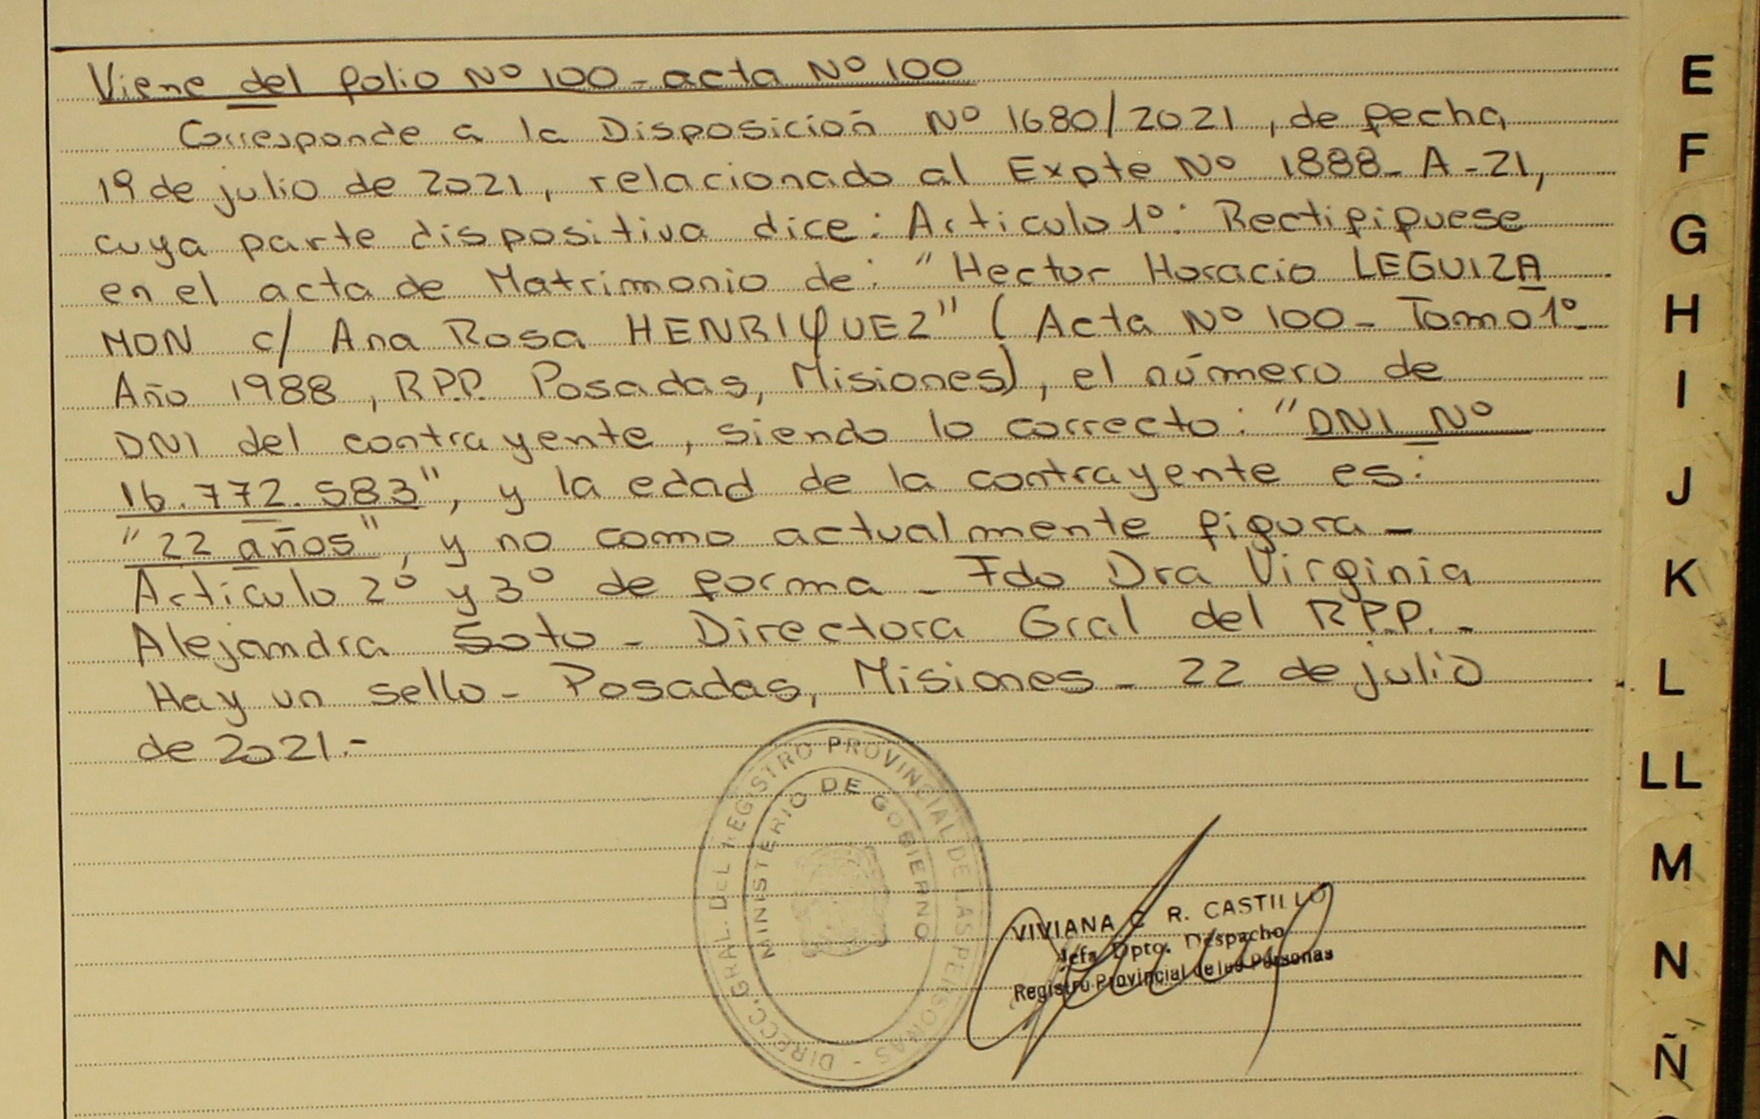 Viene del folio Nº 100 - acta Nº 100
Corresponde a la Disposición Nº 1680/2021, de fecha
19 de julio de 2021, relacionado al Expte Nº 1888-A-21,
cuya parte dispositiva dice: Articulo 1º: Rectifiquese
en el acta de Matrimonio de: "Hector Horacio LEGUIZA
MON c/ Ana Rosa HENRIQUEZ" (Acta Nº 100 - Tomo 1º
Año 1988, R.P.P. Posadas, Misiones), el número de
DNI del contrayente, siendo lo correcto: "DNI Nº
16.772.583", y la edad de la contrayente es:
"22 años", y no como actualmente figura -
Artículo 2º y 3º de forma - Fdo Dra Virginia
Alejandra Soto - Directora Gral del R.P.P. -
Hay un sello - Posadas, Misiones - 22 de julio
de 2021.-
DIRECC. GRAL. DEL REGISTRO PROVINCIAL DE LAS PERSONAS -
MINISTERIO DE GOBIERNO
VIVIANA C R. CASTILLO
Jefa Dpto. Despacho
Registro Provincial de las Personas
E
F
G
H
I
J
K
L
LL
M
N
Ñ